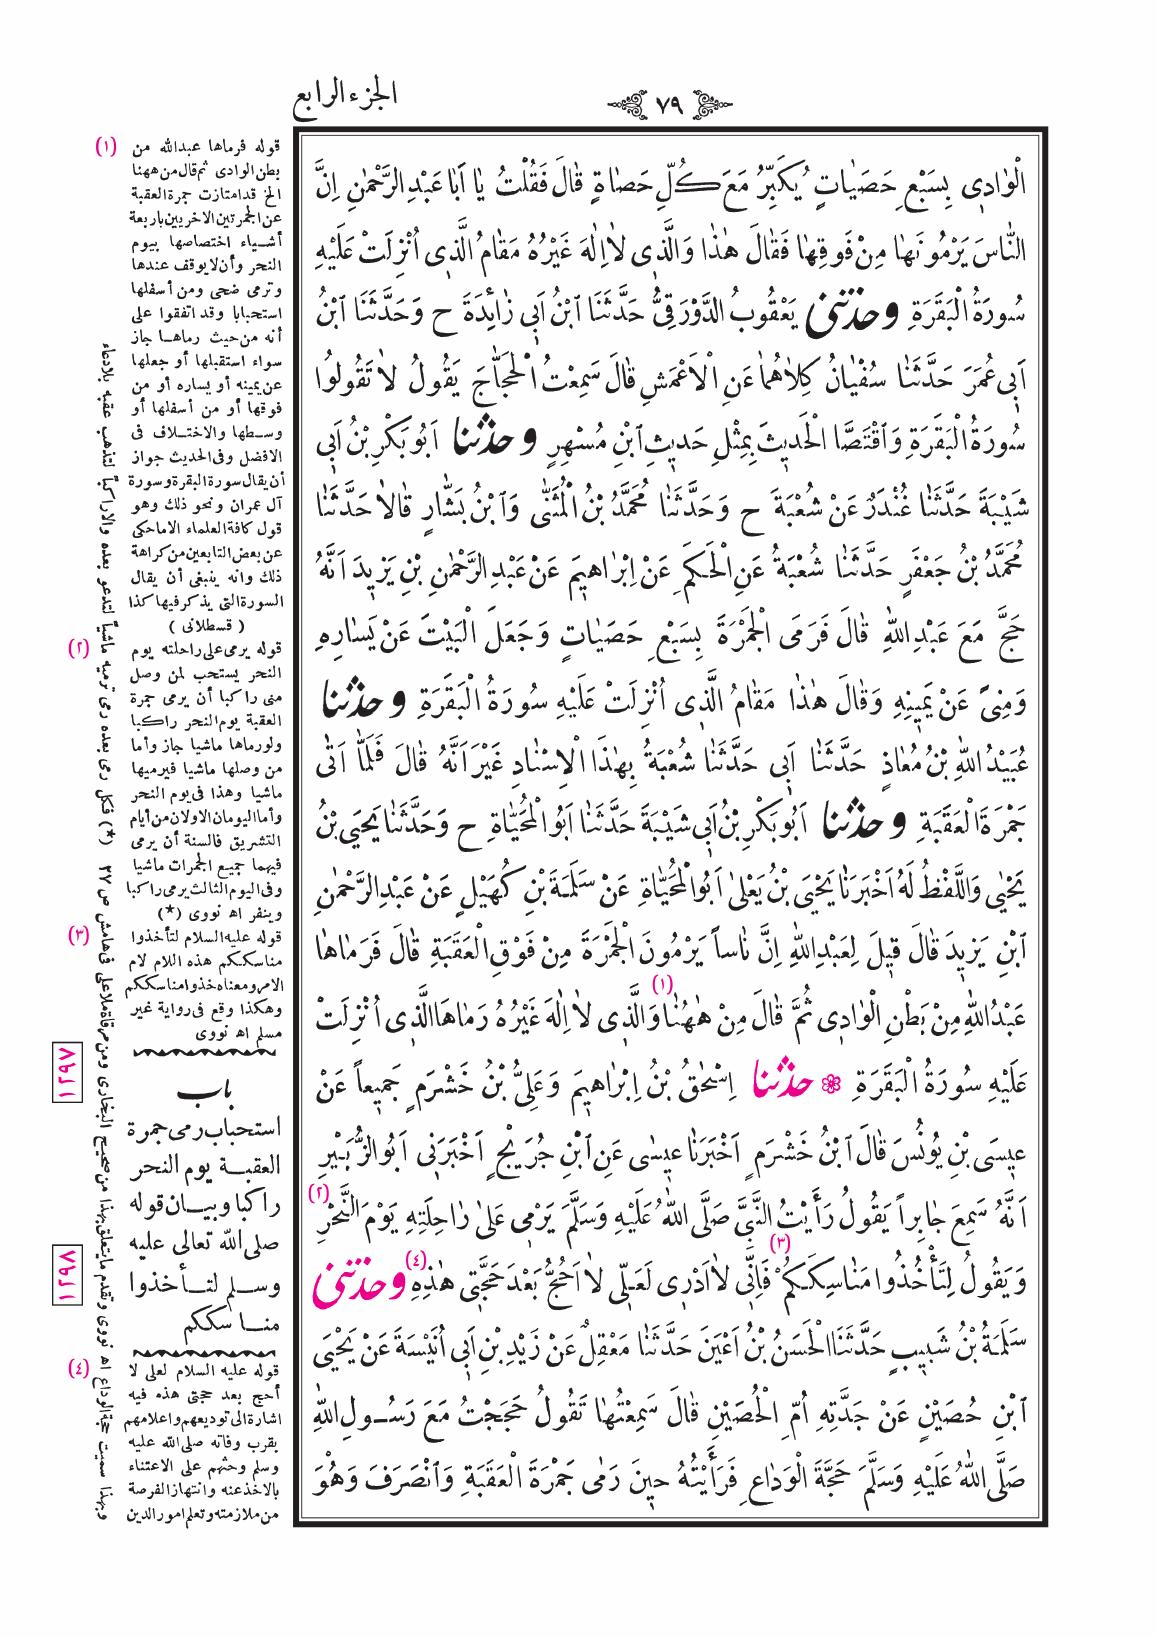 الجزء الرابع
٧٩
الْوَادِى بِسَبْعِ حَصَيَاتٍ يُكَبِّرُ مَعَ كُلِّ حَصَاةٍ قَالَ فَقُلْتُ يَا اَبَا عَبْدِ الرَّحْمٰنِ اِنَّ
النَّاسَ يَرْمُونَهَا مِنْ فَوْقِهَا فَقَالَ هٰذَا وَالَّذِى لَا اِلٰهَ غَيْرُهُ مَقَامُ الَّذِى اُنْزِلَتْ عَلَيْهِ
سُورَةُ الْبَقَرَةِ وحدثنى يَعْقُوبُ الدَّوْرَقِىُّ حَدَّثَنَا ابْنُ اَبِى زَائِدَةَ ح وَحَدَّثَنَا ابْنُ
اَبِى عُمَرَ حَدَّثَنَا سُفْيَانُ كِلَاهُمَا عَنِ الْاَعْمَشِ قَالَ سَمِعْتُ الْحَجَّاجَ يَقُولُ لَا تَقُولُوا
سُورَةُ الْبَقَرَةِ وَاقْتَصَّا الْحَدِيثَ بِمِثْلِ حَدِيثِ ابْنِ مُسْهِرٍ وحدثنا اَبُو بَكْرِ بْنُ اَبِى
شَيْبَةَ حَدَّثَنَا غُنْدَرٌ عَنْ شُعْبَةَ ح وَحَدَّثَنَا مُحَمَّدُ بْنُ الْمُثَنّٰى وَابْنُ بَشَّارٍ قَالَا حَدَّثَنَا
مُحَمَّدُ بْنُ جَعْفَرٍ حَدَّثَنَا شُعْبَةُ عَنِ الْحَكَمِ عَنْ اِبْرَاهِيمَ عَنْ عَبْدِ الرَّحْمٰنِ بْنِ يَزِيدَ اَنَّهُ
حَجَّ مَعَ عَبْدِ اللّٰهِ قَالَ فَرَمَى الْجَمْرَةَ بِسَبْعِ حَصَيَاتٍ وَجَعَلَ الْبَيْتَ عَنْ يَسَارِهِ
وَمِنًى عَنْ يَمِينِهِ وَقَالَ هٰذَا مَقَامُ الَّذِى اُنْزِلَتْ عَلَيْهِ سُورَةُ الْبَقَرَةِ وحدثنا
عُبَيْدُ اللّٰهِ بْنُ مُعَاذٍ حَدَّثَنَا اَبِى حَدَّثَنَا شُعْبَةُ بِهٰذَا الْاِسْنَادِ غَيْرَ اَنَّهُ قَالَ فَلَمَّا اَتٰى
جَمْرَةَ الْعَقَبَةِ وحدثنا اَبُو بَكْرِ بْنُ اَبِى شَيْبَةَ حَدَّثَنَا اَبُو الْمُحَيَّاةِ ح وَحَدَّثَنَا يَحْيَى بْنُ
يَحْيٰى وَاللَّفْظُ لَهُ اَخْبَرَنَا يَحْيَى بْنُ يَعْلٰى اَبُو الْمُحَيَّاةِ عَنْ سَلَمَةَ بْنِ كُهَيْلٍ عَنْ عَبْدِ الرَّحْمٰنِ
ابْنِ يَزِيدَ قَالَ قِيلَ لِعَبْدِ اللّٰهِ اِنَّ نَاسًا يَرْمُونَ الْجَمْرَةَ مِنْ فَوْقِ الْعَقَبَةِ قَالَ فَرَمَاهَا
عَبْدُ اللّٰهِ مِنْ بَطْنِ الْوَادِى ثُمَّ قَالَ مِنْ هٰهُنَا (١) وَالَّذِى لَا اِلٰهَ غَيْرُهُ رَمَاهَا الَّذِى اُنْزِلَتْ
عَلَيْهِ سُورَةُ الْبَقَرَةِ ❁ حدثنا اِسْحٰقُ بْنُ اِبْرَاهِيمَ وَعَلِىُّ بْنُ خَشْرَمٍ جَمِيعًا عَنْ
عِيسَى بْنِ يُونُسَ قَالَ ابْنُ خَشْرَمٍ اَخْبَرَنَا عِيسٰى عَنِ ابْنِ جُرَيْجٍ اَخْبَرَنِى اَبُو الزُّبَيْرِ
اَنَّهُ سَمِعَ جَابِرًا يَقُولُ رَأَيْتُ النَّبِىَّ صَلَّى اللّٰهُ عَلَيْهِ وَسَلَّمَ يَرْمِى عَلٰى رَاحِلَتِهِ يَوْمَ النَّحْرِ (٢)
وَيَقُولُ لِتَأْخُذُوا مَنَاسِكَكُمْ (٣) فَاِنِّى لَا اَدْرِى لَعَلِّى لَا اَحُجُّ بَعْدَ حَجَّتِى هٰذِهِ (٤) وحدثنى
سَلَمَةُ بْنُ شَبِيبٍ حَدَّثَنَا الْحَسَنُ بْنُ اَعْيَنَ حَدَّثَنَا مَعْقِلٌ عَنْ زَيْدِ بْنِ اَبِى اُنَيْسَةَ عَنْ يَحْيَى
ابْنِ حُصَيْنٍ عَنْ جَدَّتِهِ اُمِّ الْحُصَيْنِ قَالَ سَمِعْتُهَا تَقُولُ حَجَجْتُ مَعَ رَسُولِ اللّٰهِ
صَلَّى اللّٰهُ عَلَيْهِ وَسَلَّمَ حَجَّةَ الْوَدَاعِ فَرَأَيْتُهُ حِينَ رَمٰى جَمْرَةَ الْعَقَبَةِ وَانْصَرَفَ وَهُوَ
(١) قوله فرماها عبدالله من
بطن الوادى ثم قال من ههنا
الخ قد امتازت جمرة العقبة
عن الجمرتين الاخريين باربعة
أشياء اختصاصها بيوم
النحر وأن لا يوقف عندها
وترمى ضحى ومن أسفلها
استحبابا وقد اتفقوا على
أنه من حيث رماها جاز
سواء استقبلها أو جعلها
عن يمينه أو يساره أو من
فوقها أو من أسفلها أو
وسطها والاختلاف فى
الافضل وفى الحديث جواز
أن يقال سورة البقرة وسورة
آل عمران ونحو ذلك وهو
قول كافة العلماء الا ماحكى
عن بعض التابعين من كراهة
ذلك وانه ينبغى أن يقال
السورة التى يذكر فيها كذا
( قسطلانى )
(٢) قوله يرمى على راحلته يوم
النحر يستحب لمن وصل
منى راكبا أن يرمى جمرة
العقبة يوم النحر راكبا
ولو رماها ماشيا جاز وأما
من وصلها ماشيا فيرميها
ماشيا وهذا فى يوم النحر
وأما اليومان الاولان من أيام
التشريق فالسنة أن يرمى
فيهما جميع الجمرات ماشيا
وفى اليوم الثالث يرمى راكبا
وينفر اه نووى (*)
(٣) قوله عليه السلام لتأخذوا
مناسككم هذه اللام لام
الامر ومعناه خذوا مناسككم
وهكذا وقع فى رواية غير
مسلم اه نووى
١٢٩٧
باب
استحباب رمى جمرة
العقبة يوم النحر
راكبا وبيان قوله
صلى الله تعالى عليه
وسلم لتأخذوا
مناسككم
١٢٩٨
(٤) قوله عليه السلام لعلى لا
أحج بعد حجتى هذه فيه
اشارة الى توديعهم واعلامهم
بقرب وفاته صلى الله عليه
وسلم وحثهم على الاعتناء
بالاخذ عنه وانتهاز الفرصة
من ملازمته وتعلم امور الدين
وبهذا سميت حجة الوداع اه نووى وتقدم ما يتعلق بهذا من صحيح البخارى ومن مرقاة ملا على فى هامش ص ٣٧ (*) فكل رمى بعده رمى ترميه ماشياً لتدعو بعده والا راكباً لتذهب عقبه بلا دعاء